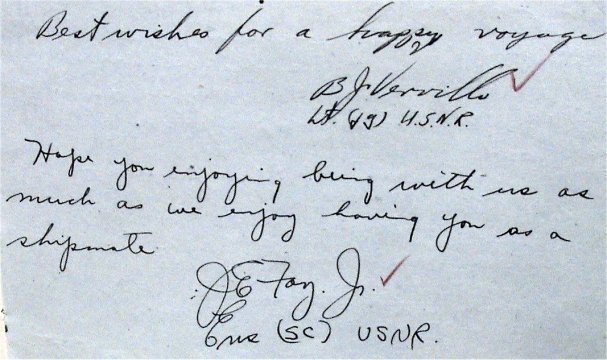 Best wishes for a happy voyage
B J Verville
Lt. (jg) U.S.N.R.
Hope you enjoying being with us as
much as we enjoy having you as a
shipmate
J E Fay. Jr.
Ens (SC) USNR.